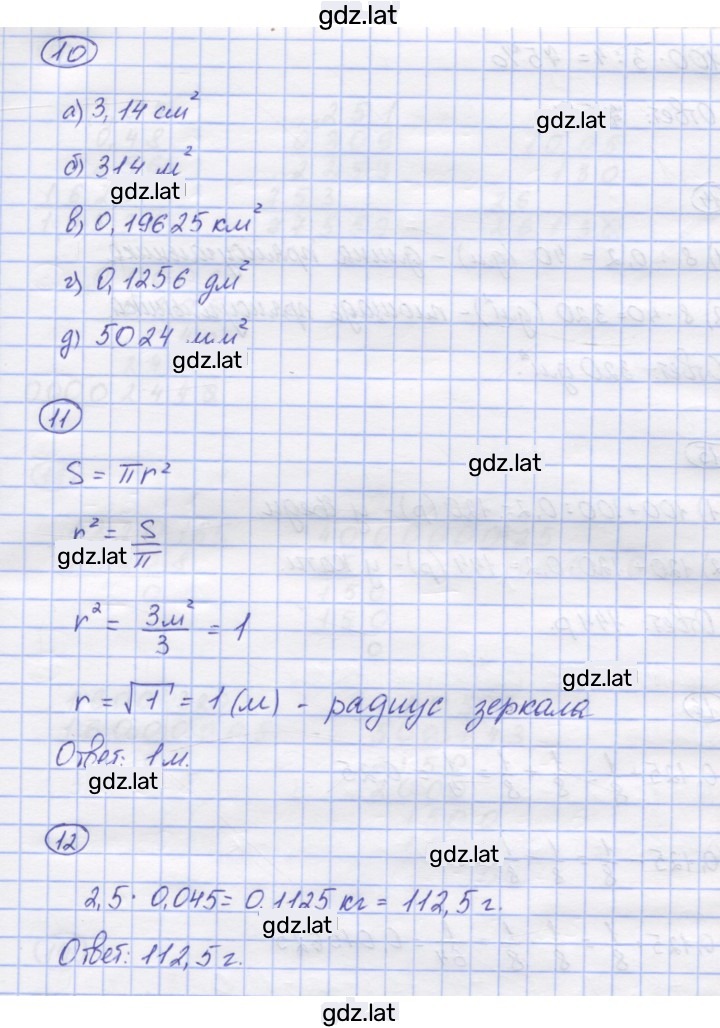 gdz.lat
10
а) 3,14 см²
gdz.lat
б) 314 м²
gdz.lat
в) 0,19625 км²
г) 0,1256 дм²
д) 5024 мм²
gdz.lat
11
S = πr²
gdz.lat
r² = S/π
gdz.lat
r² = 3м²/3 = 1
gdz.lat
r = √1 = 1 (м) - радиус зеркала
Ответ: 1 м.
gdz.lat
12
gdz.lat
2,5 · 0,045 = 0,1125 кг = 112,5 г.
gdz.lat
Ответ: 112,5 г.
gdz.lat